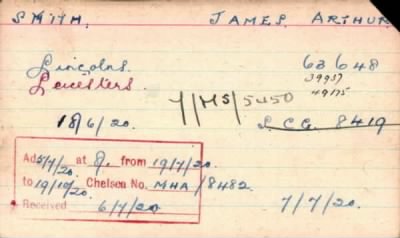 SMITH. JAMES ARTHUR
Lincolns. 63648
Leicesters. 39937
49175
7/MS/5450
18/6/20. L.C.G. 8419
Ad 5/7/20. at 8/. from 19/7/20.
to 19/10/20. Chelsea No. MHA/8482.
Received 6/7/20
7/7/20.